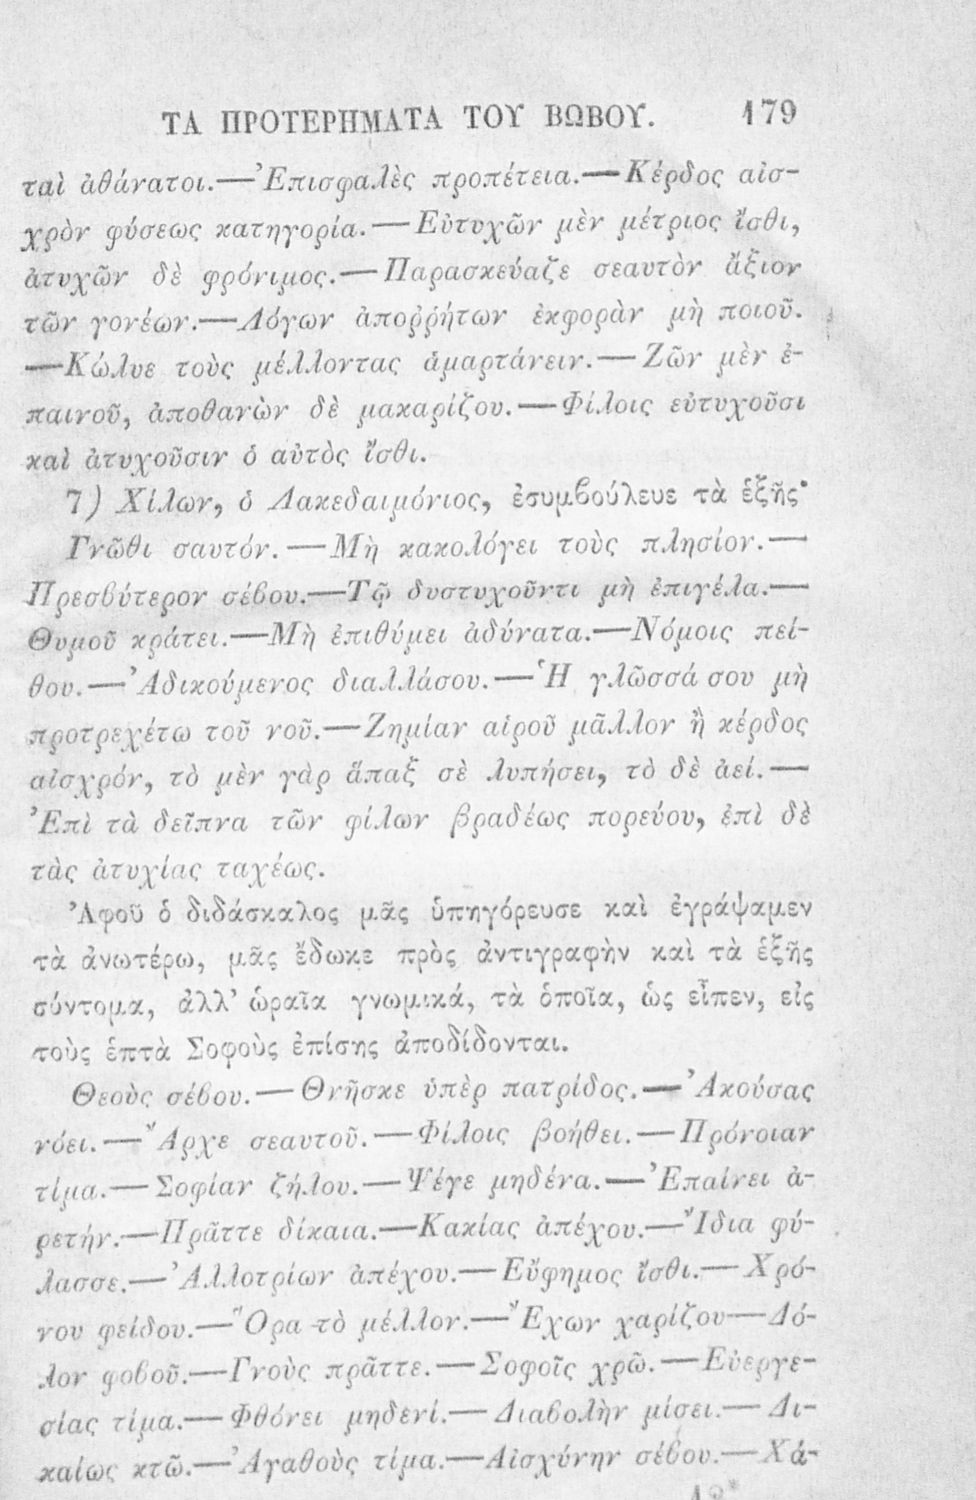 ΤΑ ΠΡΟΤΕΡΗΜΑΤΑ ΤΟΥ ΒΩΒΟΥ. 179
ταὶ ἀθάνατοι.—Ἐπισφαλὲς προπέτεια.—Κέρδος αἰσ-
χρὸν φύσεως κατηγορία.—Εὐτυχῶν μὲν μέτριος ἴσθι,
ἀτυχῶν δὲ φρόνιμος.—Παρασκεύαζε σεαυτὸν ἄξιον
τῶν γονέων.—Λόγων ἀποῤῥήτων ἐκφορὰν μὴ ποιοῦ.
—Κώλυε τοὺς μέλλοντας ἁμαρτάνειν.—Ζῶν μὲν ἐ-
παινοῦ, ἀποθανὼν δὲ μακαρίζου.—Φίλοις εὐτυχοῦσι
καὶ ἀτυχοῦσιν ὁ αὐτὸς ἴσθι.
7) Χίλων, ὁ Λακεδαιμόνιος, ἐσυμβούλευε τὰ ἑξῆς·
Γνῶθι σαυτόν.—Μὴ κακολόγει τοὺς πλησίον.—
Πρεσβύτερον σέβου.—Τῷ δυστυχοῦντι μὴ ἐπιγέλα.—
Θυμοῦ κράτει.—Μὴ ἐπιθύμει ἀδύνατα.—Νόμοις πεί-
θου.—Ἀδικούμενος διαλλάσου.—Ἡ γλῶσσά σου μὴ
προτρεχέτω τοῦ νοῦ.—Ζημίαν αἱροῦ μᾶλλον ἢ κέρδος
αἰσχρόν, τὸ μὲν γὰρ ἅπαξ σὲ λυπήσει, τὸ δὲ ἀεί.—
Ἐπὶ τὰ δεῖπνα τῶν φίλων βραδέως πορεύου, ἐπὶ δὲ
τὰς ἀτυχίας ταχέως.
Ἀφοῦ ὁ διδάσκαλος μᾶς ὑπηγόρευσε καὶ ἐγράψαμεν
τὰ ἀνωτέρω, μᾶς ἔδωκε πρὸς ἀντιγραφὴν καὶ τὰ ἑξῆς
σύντομα, ἀλλ’ ὡραῖα γνωμικά, τὰ ὁποῖα, ὡς εἶπεν, εἰς
τοὺς ἑπτὰ Σοφοὺς ἐπίσης ἀποδίδονται.
Θεοὺς σέβου.—Θνῆσκε ὑπὲρ πατρίδος.—Ἀκούσας
νόει.—Ἄρχε σεαυτοῦ.—Φίλοις βοήθει.—Πρόνοιαν
τίμα.—Σοφίαν ζήλου.—Ψέγε μηδένα.—Ἐπαίνει ἀ-
ρετήν.—Πρᾶττε δίκαια.—Κακίας ἀπέχου.—Ἴδια φύ-
λασσε.—Ἀλλοτρίων ἀπέχου.—Εὔφημος ἴσθι.—Χρό-
νου φείδου.—Ὅρα τὸ μέλλον.—Ἔχων χαρίζου—Δό-
λον φοβοῦ.—Γνοὺς πρᾶττε.—Σοφοῖς χρῶ.—Εὐεργε-
σίας τίμα.—Φθόνει μηδενί.—Διαβολὴν μίσει.—Δι-
καίως κτῶ.—Ἀγαθοὺς τίμα.—Αἰσχύνην σέβου.—Χά-